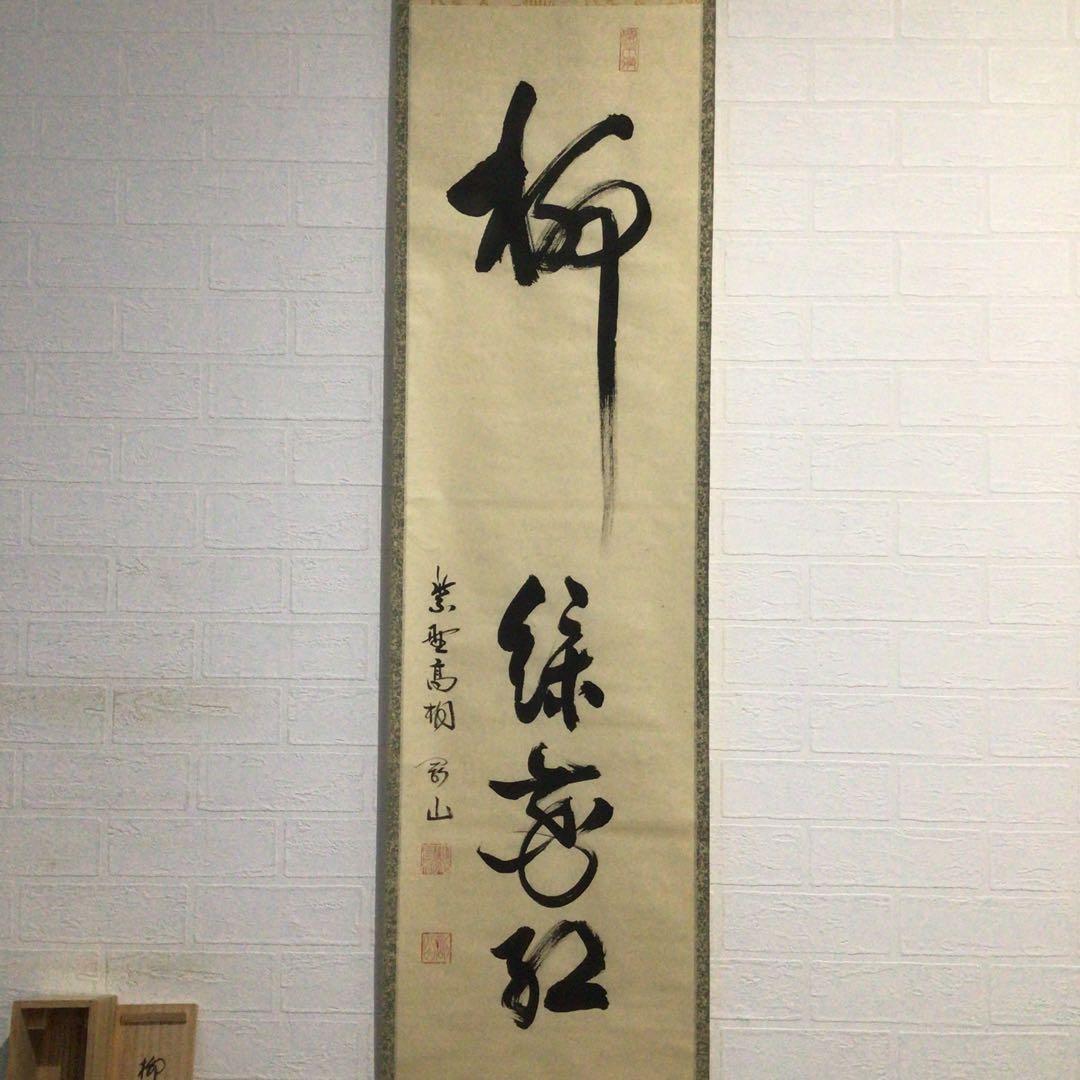 柳緑花紅
紫野高桐 剛山
柳